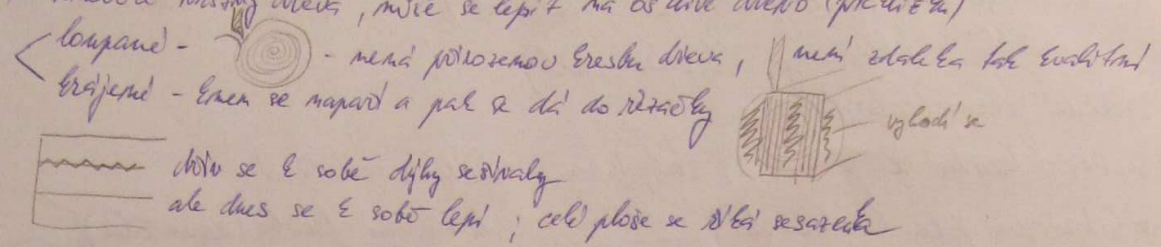 vrstvy dřeva, může se lepit na ošklivé dřevo
loupané - - nemá přirozenou kresbu dřeva, není zdaleka tak kvalitní
krájené - kmen se napaří a pak se dá do řezačky
vyhodí se
dřív se k sobě dýhy sešívaly
ale dnes se k sobě lepí; celé ploše se říká sesazenka